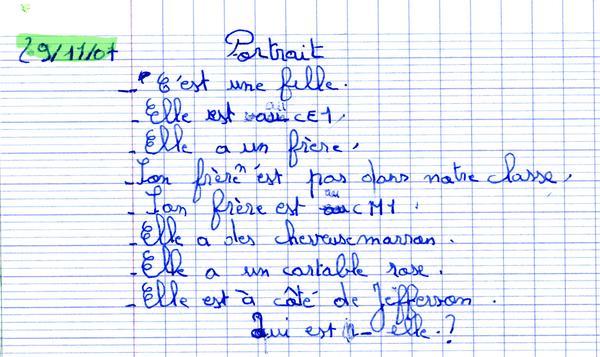 29/11/07 Portrait
- C'est une fille.
- Elle est au CE1.
- Elle a un frère.
- Son frère n'est pas dans notre classe.
- Son frère est au CM1.
- Elle a des cheveuse marron.
- Elle a un cartable rose.
- Elle est à côté de Jefferson.
Qui est - elle ?